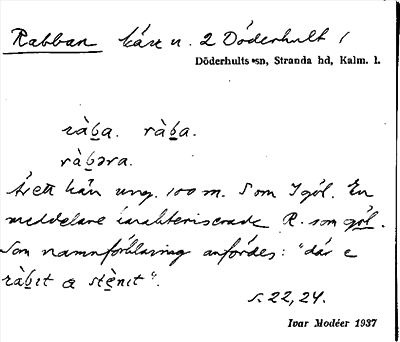 Rabban kärr n. 2 Döderhult 1
Döderhults sn, Stranda hd, Kalm. l.
ràb̲a. ràb̲a.
ràb̲əra.
Är ett kärr ung. 100 m. S om Igöl. En
meddelare karakteriserade R. som göl.
Som namnförklaring anfördes: "där e
ràb̲ıt æ stènıt".
s. 22, 24.
Ivar Modéer 1937